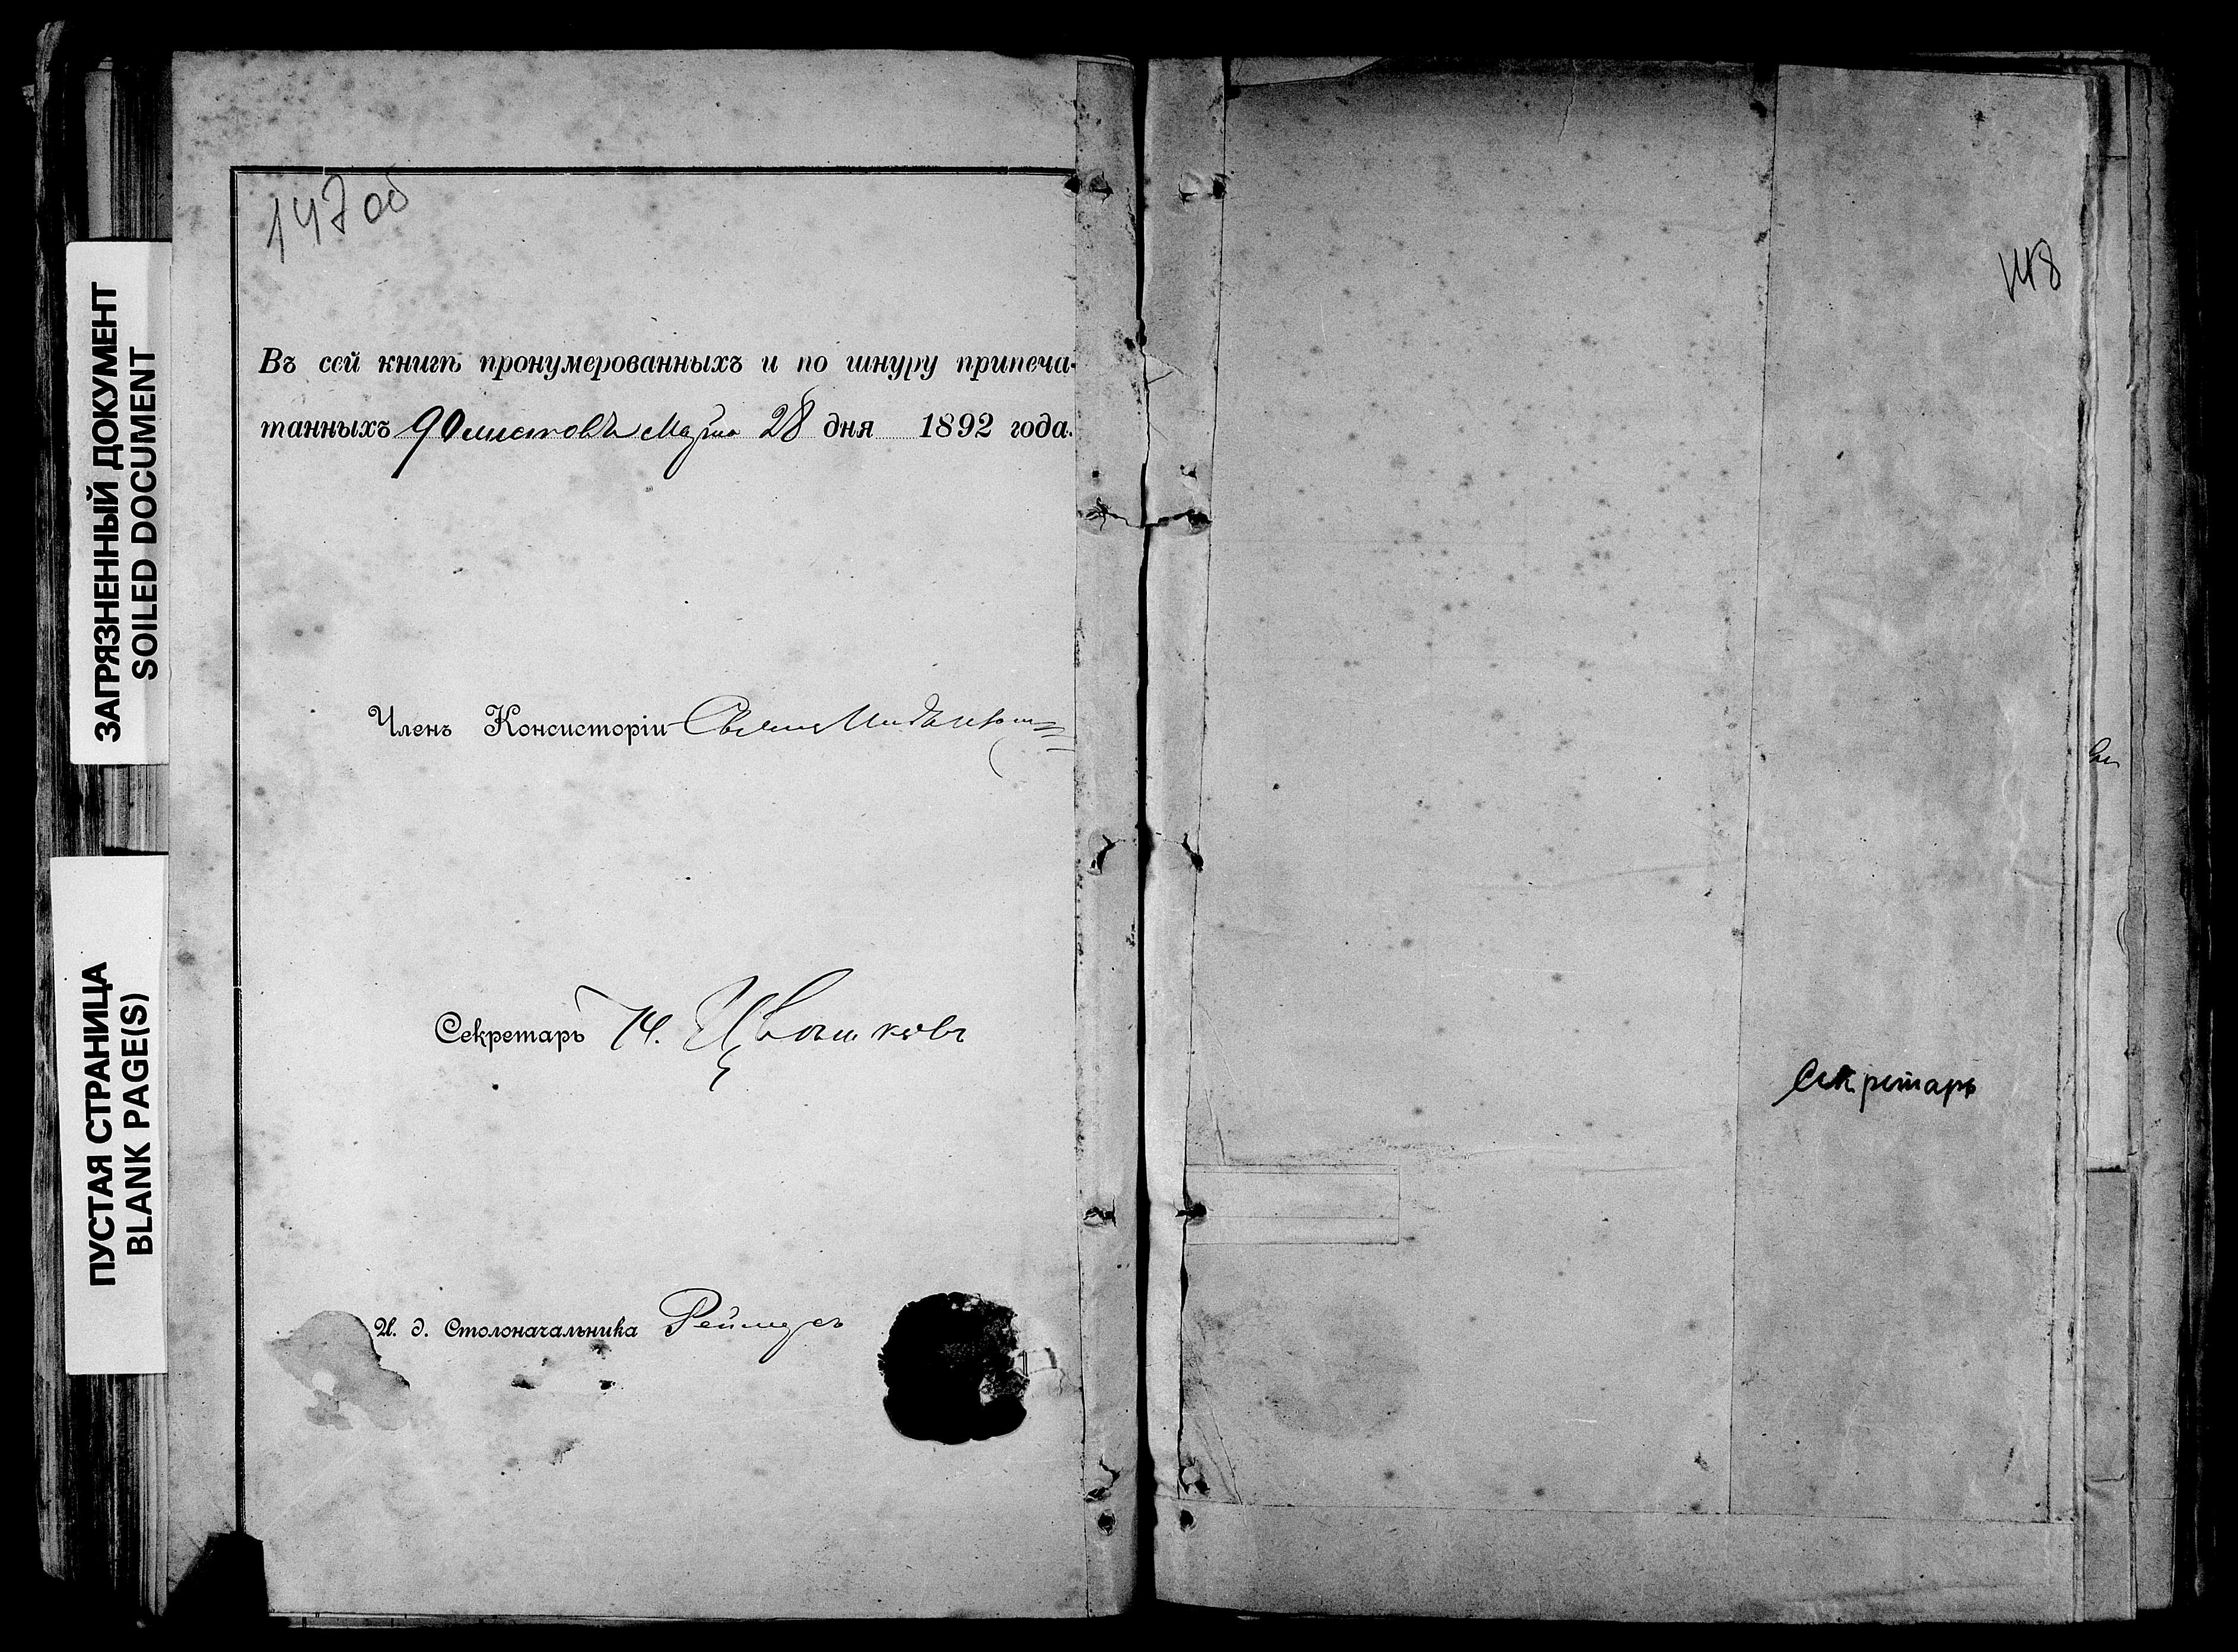 147 об
Въ сей книгѣ пронумерованныхъ и по шнуру припеча-
танныхъ 90 листовъ Марта 28 дня 1892 года.
Членъ Консисторіи
Секретарь
И. д. Столоначальника Реймерсъ
148
Секретарь
ЗАГРЯЗНЕННЫЙ ДОКУМЕНТ
SOILED DOCUMENT
ПУСТАЯ СТРАНИЦА
BLANK PAGE(S)